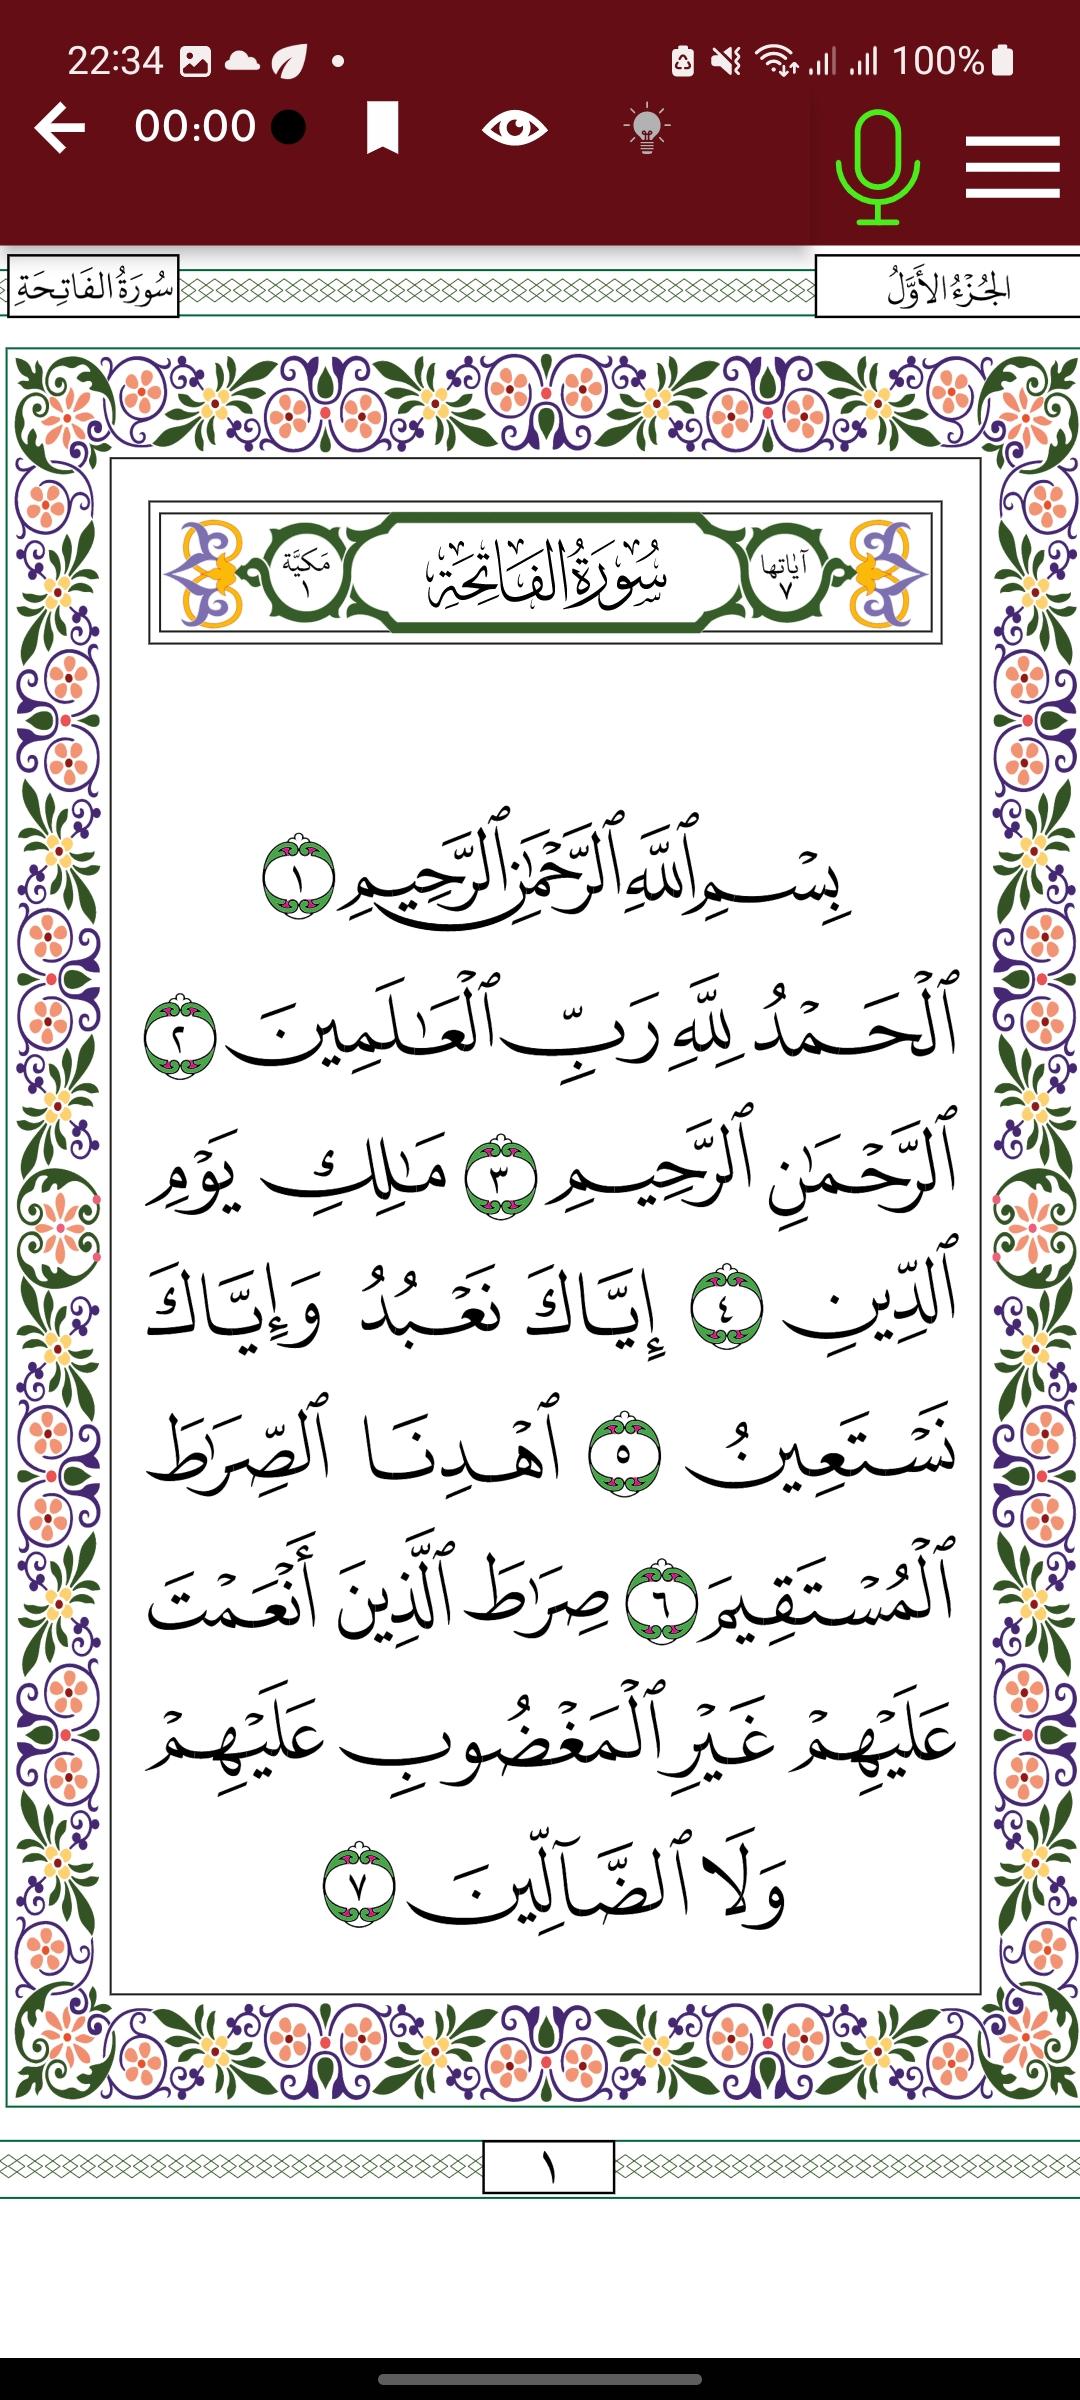 22:34 100%
00:00
سُورَةُ الفَاتِحَةِ الجُزْءُ الأَوَّلُ
آيَاتها ٧ سُورَةُ الفَاتِحَةِ مَكيَّة ١
بِسْمِ ٱللَّهِ ٱلرَّحْمَٰنِ ٱلرَّحِيمِ ١
ٱلْحَمْدُ لِلَّهِ رَبِّ ٱلْعَٰلَمِينَ ٢
ٱلرَّحْمَٰنِ ٱلرَّحِيمِ ٣ مَٰلِكِ يَوْمِ
ٱلدِّينِ ٤ إِيَّاكَ نَعْبُدُ وَإِيَّاكَ
نَسْتَعِينُ ٥ ٱهْدِنَا ٱلصِّرَٰطَ
ٱلْمُسْتَقِيمَ ٦ صِرَٰطَ ٱلَّذِينَ أَنْعَمْتَ
عَلَيْهِمْ غَيْرِ ٱلْمَغْضُوبِ عَلَيْهِمْ
وَلَا ٱلضَّآلِّينَ ٧
١